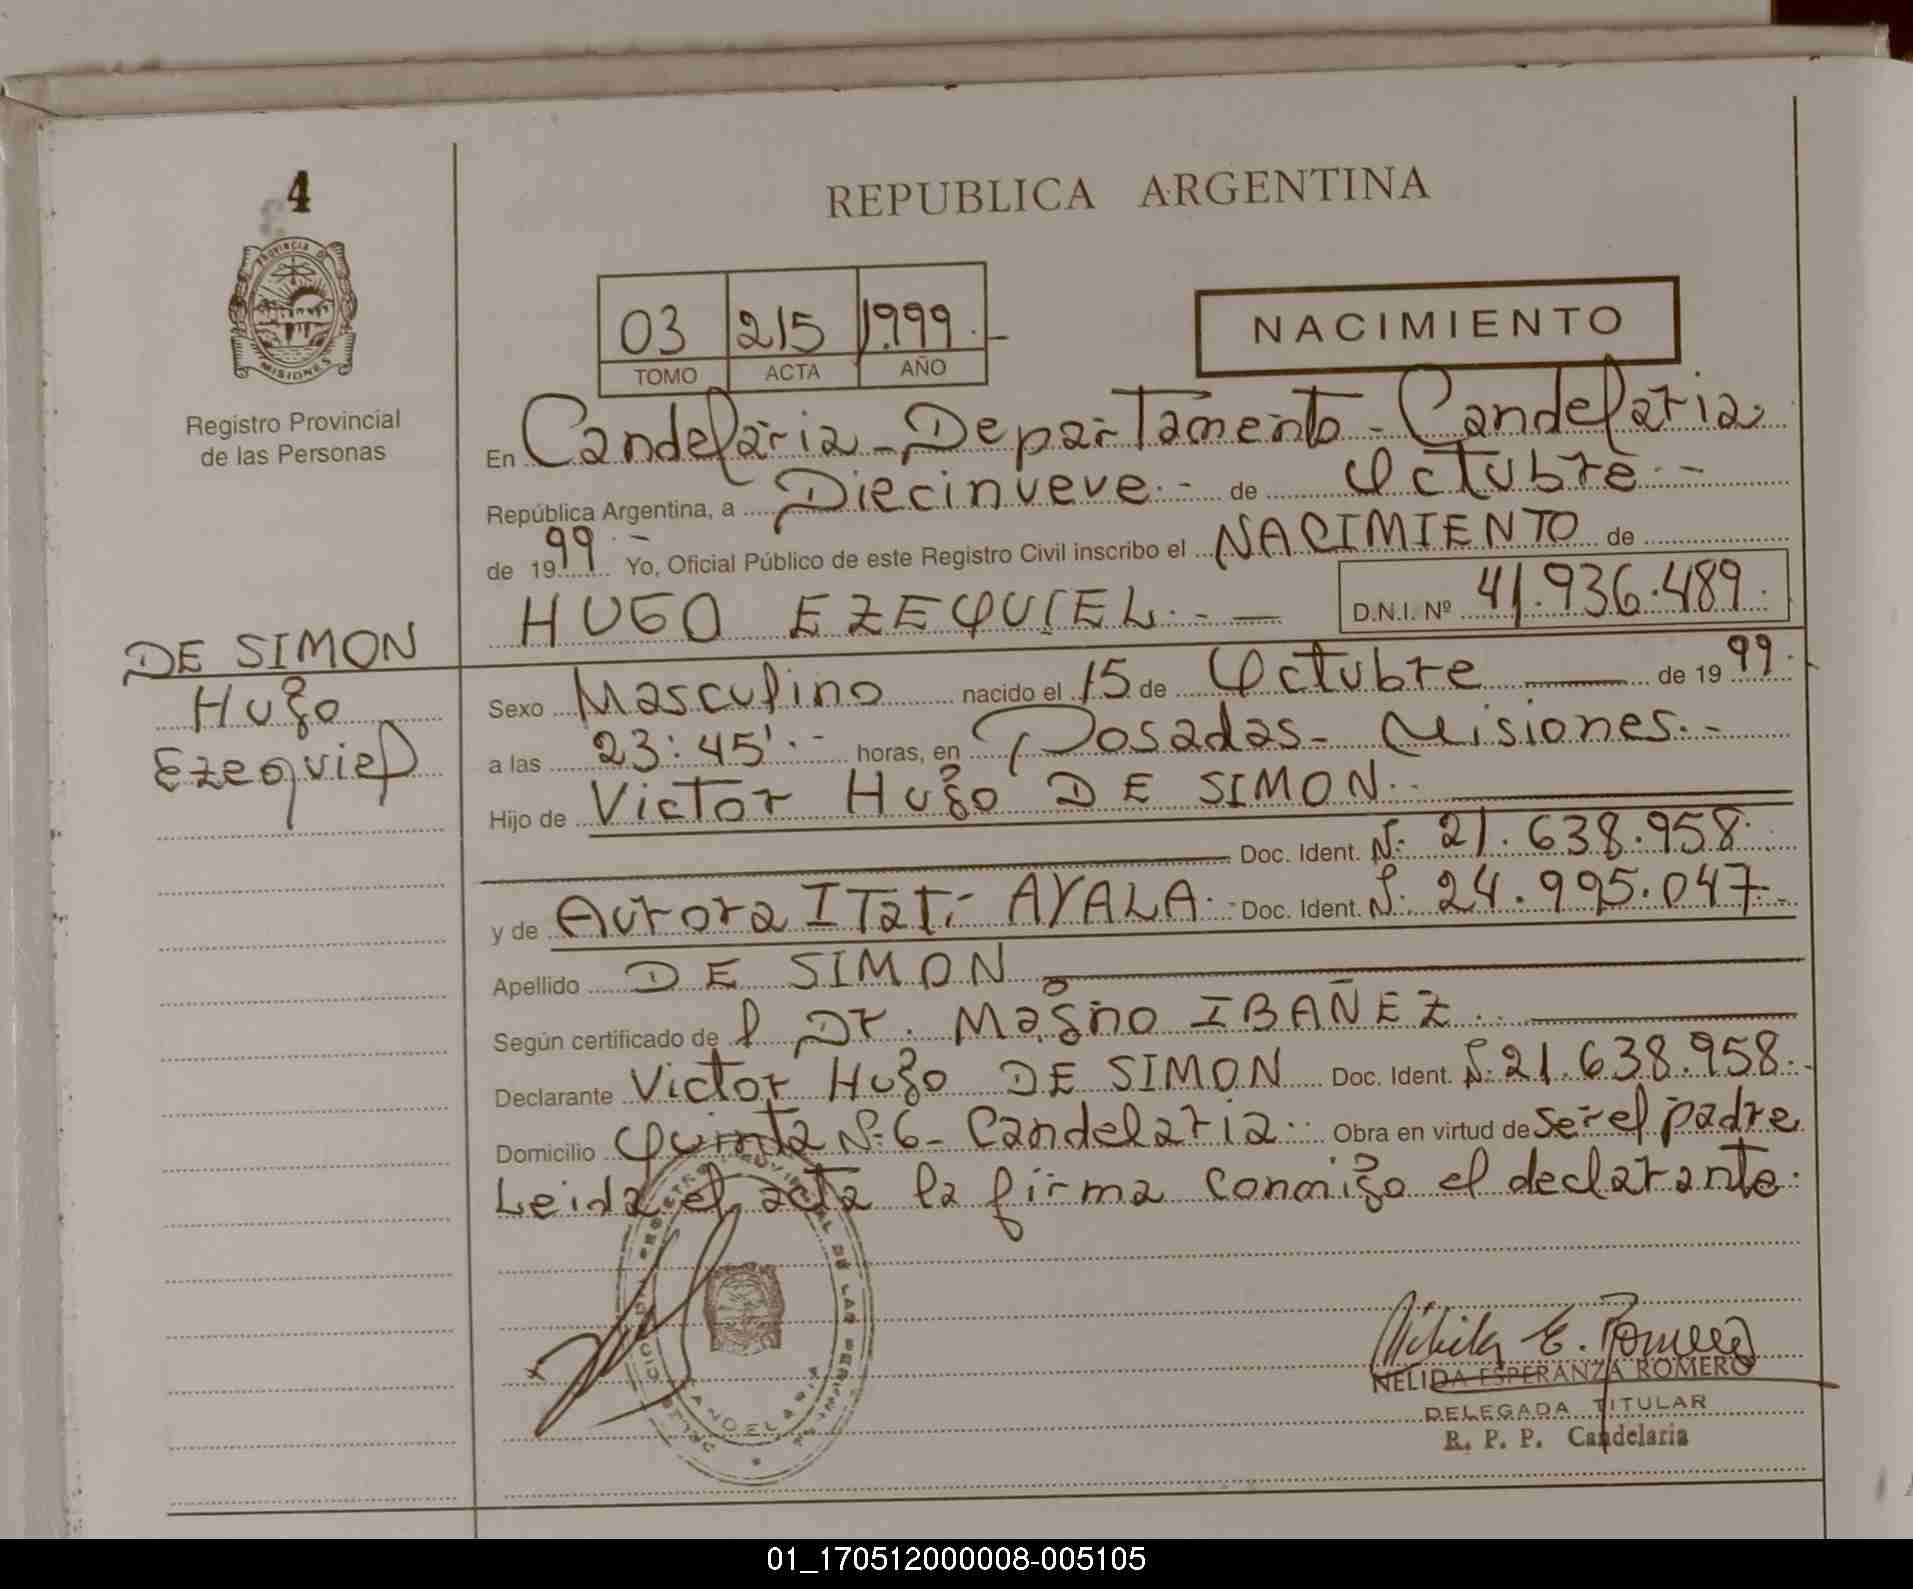 4
PROVINCIA DE
MISIONES
Registro Provincial
de las Personas
DE SIMON
Hugo
Ezequiel
REPUBLICA ARGENTINA
03 215 1.999.-
TOMO ACTA AÑO
NACIMIENTO
En Candelaria - Departamento - Candelaria
República Argentina, a Diecinueve.- de Octubre.-
de 1999.- Yo, Oficial Público de este Registro Civil inscribo el NACIMIENTO de
HUGO EZEQUIEL.- — D.N.I. Nº 41.936.489.
Sexo Masculino nacido el 15 de Octubre — de 1999.
a las 23:45'.- horas, en Posadas - Misiones.-
Hijo de Victor Hugo DE SIMON..
Doc. Ident. Nº 21.638.958.
y de Aurora Itati AYALA.- Doc. Ident. Nº 24.995.047.-
Apellido DE SIMON
Según certificado de l Dr. Magno IBAÑEZ..
Declarante Victor Hugo DE SIMON Doc. Ident. Nº 21.638.958.-
Domicilio Quinta Nº 6 - Candelaria.. Obra en virtud de ser el padre
Leida el acta la firma conmigo el declarante.
CANDELARIA
Nélida E. Romero
NELIDA ESPERANZA ROMERO
DELEGADA TITULAR
R. P. P. Candelaria
01_170512000008-005105